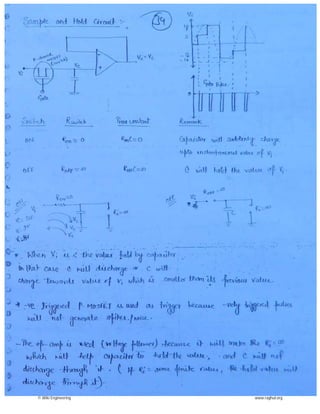 Sample and Hold Circuit :-
39
Vi
Vo = Vc
Vc
Gate
Gate Pulse
Switch Rswitch Time constant Remark
ON RON = 0 RONC = 0 Capacitor will suddenly charge
upto instantaneous value of Vi
OFF ROFF = ∞ ROFFC = ∞ C will hold the value of Vi
ON RON=0
OFF ROFF = ∞
Ri=∞
Ri=∞
When Vi is < the value held by capacitor
In that case C will discharge ⇒ C will
charge towards value of Vi which is smaller than its previous value.
-ve Triggered P-MOSFET is used as trigger because -vely triggered pulse
will not generate spikes/noise.
- The op-amp is used (voltage follower) because it will make the Ri = ∞
which will help capacitor to hold the value, and C will not
discharge through it. (If Ri = some finite value, the held value will
discharge through it).
© Wiki Engineering www.raghul.org